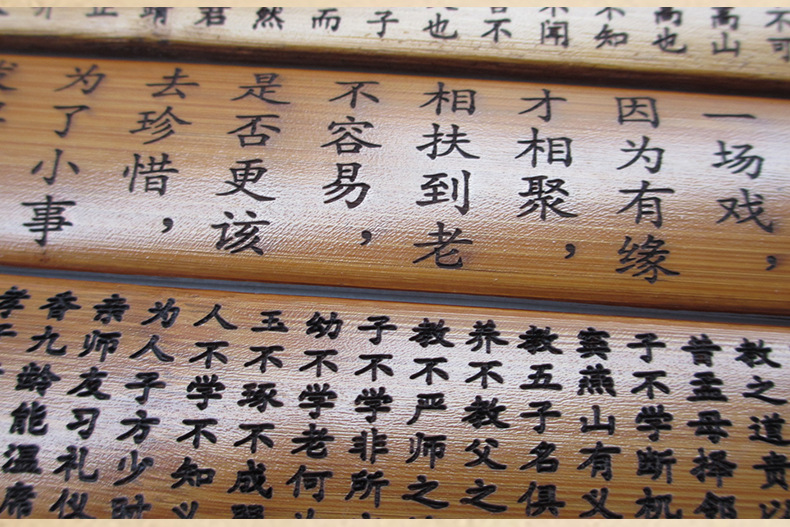 不可
山
也
不知
不闻
不
也
子
而
然
君
靖
一场戏，
因为有缘
才相聚，
相扶到老
不容易，
是否更该
去珍惜，
为了小事
教之道贵以
昔孟母择邻
子不学断机
窦燕山有义
教五子名俱
养不教父之
教不严师之
子不学非所
幼不学老何
玉不琢不成器
人不学不知义
为人子方少时
亲师友习礼仪
香九龄能温席
孝